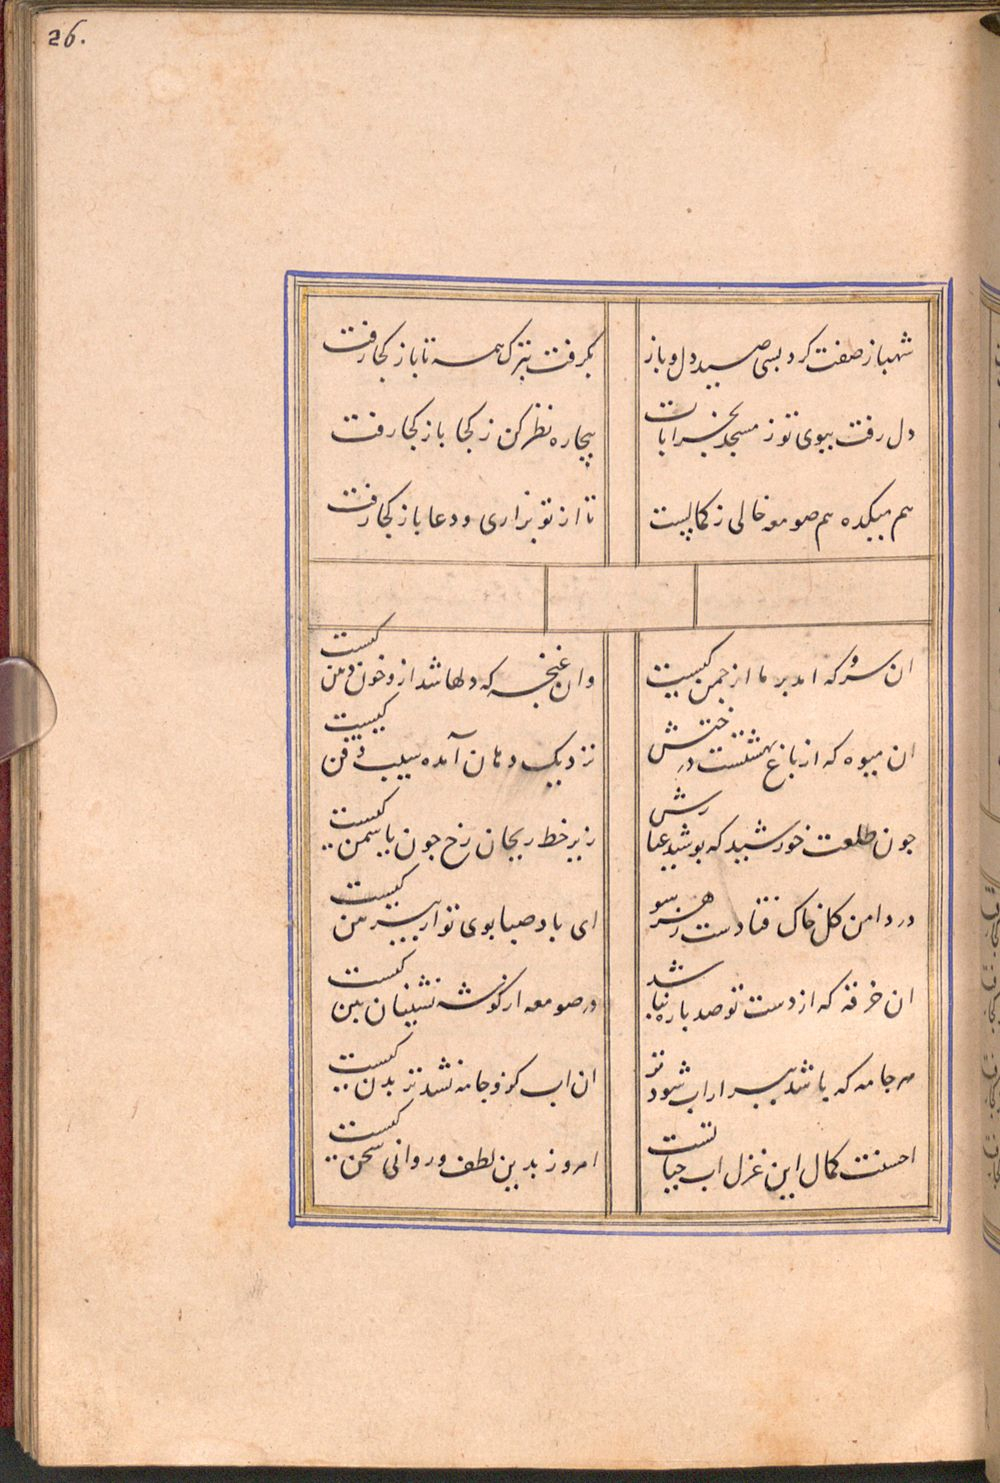 26.
شهباز صفت کرد بسی صید دل و باز
بگرفت بترک همه تا باز کجا رفت
دل رفت ببوی تو ز مسجد بخرابات
بیچاره نظر کن ز کجا باز کجا رفت
هم میکده هم صومعه خالی ز کمالیست
تا از تو بزاری و دعا باز کجا رفت
ان سرو که امد بر ما از چمن کیست
وان غنچه که دلها شد ازو خون دهن کیست
ان میوه که از باغ بهشتست درختش
نزدیک دهان آمده سیب ذقن کیست
جون طلعت خورشید که پوشید عبارش
زیر خط ریحان رخ جون یاسمن کیست
در دامن کل خاک فتادست ز هر سو
ای باد صبا بوی تو از پیرهن کیست
ان خرقه که از دست تو صد باره نباشد
در صومعه از کوشه نشینان بتن کیست
هر جامه که باشد بسر اب شود تر
ان اب کزو جامه نشد تر بدن کیست
احسنت کمال این غزل اب حیاتست
امروز بدین لطف و روانی سخن کیست